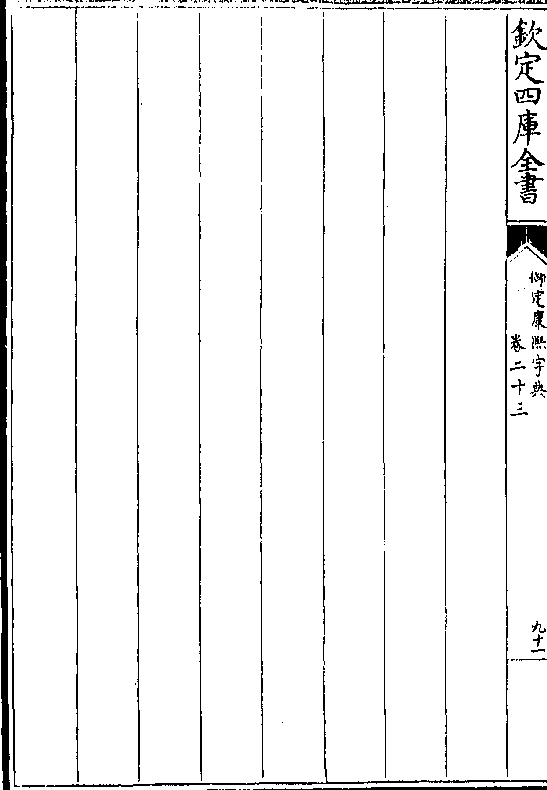 欽定四庫全書
御定康熙字典
卷二十三
九十一